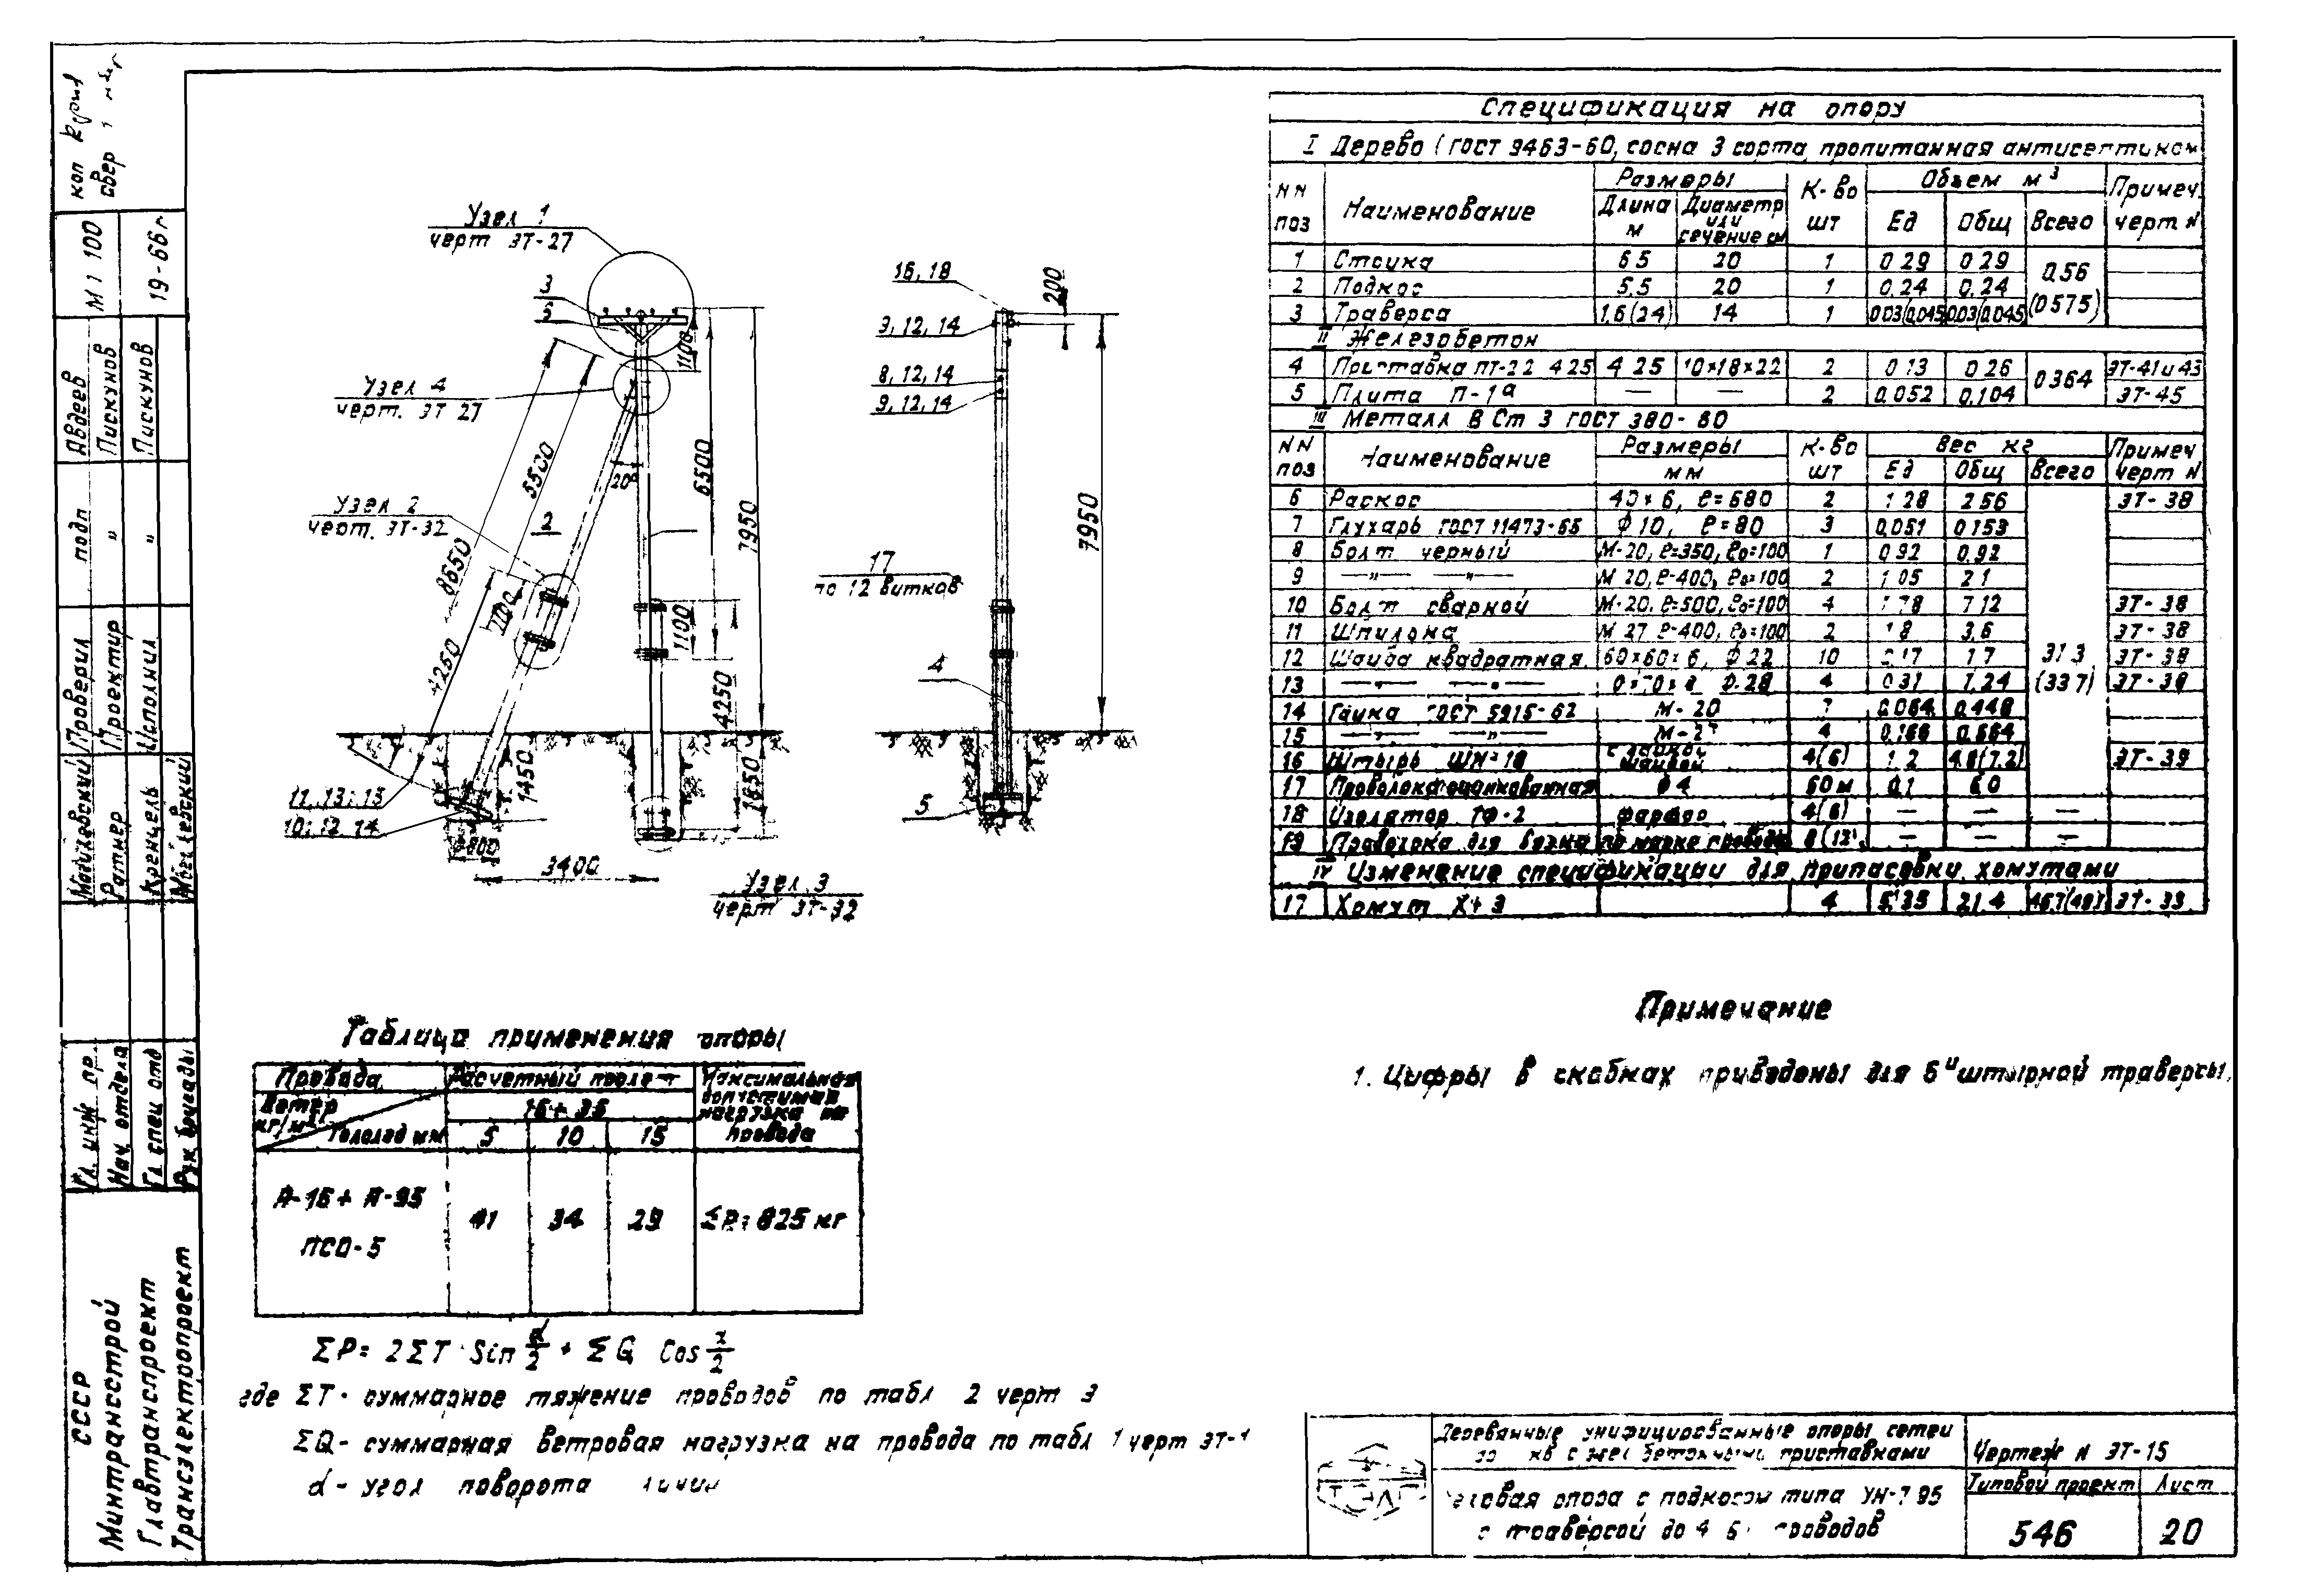 Спецификация на опору
I Дерево (ГОСТ 9463-60, сосна 3 сорта, пропитанная антисептиком
NN поз Наименование Размеры Длина м Диаметр или сечение см К-во шт Объем м3 Ед Общ Всего Примеч. черт N
1 Стойка 6.5 20 1 0.29 0.29 0.56 (0.575)
2 Подкос 5.5 20 1 0.24 0.24
3 Траверса 1.6(2.4) 14 1 0.03(0.045) 0.03(0.045)
II Железобетон
4 Приставка ПТ-2.2 4.25 4.25 10×18×22 2 0.13 0.26 0.364 ЭТ-41 и 43
5 Плита П-1а — — 2 0.052 0.104 ЭТ-45
III Металл В Ст 3 ГОСТ 380-60
NN поз Наименование Размеры мм К-во шт Вес кг Ед Общ Всего Примеч черт N
6 Раскос 40×6, ℓ=680 2 1.28 2.56 ЭТ-38
7 Глухарь ГОСТ 11473-65 ф10, ℓ=80 3 0.051 0.153
8 Болт черный М-20, ℓ=350, ℓ0=100 1 0.92 0.92
9 —"— —"— М-20, ℓ=400, ℓ0=100 2 1.05 2.1
10 Болт сварной М-20, ℓ=500, ℓ0=100 4 1.78 7.12 ЭТ-38
11 Шпилька М 27 ℓ=400, ℓ0=100 2 1.8 3.6 ЭТ-38
12 Шайба квадратная 60×60×6, ф22 10 0.17 1.7 31.3 ЭТ-38
13 —"— —"— ф28 4 0.31 1.24 (33.7) ЭТ-38
14 Гайка ГОСТ 5915-62 М-20 7 0.064 0.448
15 —"— —"— М-27 4 0.166 0.664
16 Штырь ШН-18 4(6) 1.2 4.8(7.2) ЭТ-39
17 Проволока оцинкованная ф4 60м 0.1 6.0
18 Изолятор ТФ-2 фарфор 4(6) — — —
19 Проволока для вязки по марке провода — — —
IV Изменение спецификации для припасовки хомутами
17 Хомут 4 5.35 21.4 ЭТ-33
Узел 1
черт ЭТ-27
3
6
1100
Узел 4
черт. ЭТ 27
5500
20°
6500
7950
Узел 2
черт. ЭТ-32
2
8650
1100
4250
1100
4250
1450
1650
11, 13; 15
10; 12 14
800
3400
Узел 3
черт ЭТ-32
16, 18
200
9, 12, 14
8, 12, 14
9, 12, 14
7950
17
по 12 витков
4
5
Примечание
1. Цифры в скобках приведены для 6и штырной траверсы.
Таблица применения опоры
Провода Расчетный пролет Максимальная допустимая нагрузка на провода
Ветер кг/м2 16÷35
Гололед мм 5 10 15
А-16÷А-95 ПСО-5 41 34 29 ΣP=825 кг
ΣP= 2ΣT·Sin α/2 + ΣQ Cos α/2
где ΣT- суммарное тяжение проводов по табл 2 черт 3
ΣQ- суммарная ветровая нагрузка на провода по табл 1 черт ЭТ-1
α- угол поворота линии
Деревянные унифицированные опоры сетей
приставками
Чертеж N ЭТ-15
Угловая опора с подкосом типа
с траверсой до 4 6 проводов
Типовой проект Лист
546 20
М 1 100
19-66г
Авдеев
Пискунов
Пискунов
подп
"
"
Проверил
Проектир
Исполнил
Ратнер
Кренцель
Гл. инж пр.
Нач. отдела
Гл спец отд
Рук бригады
СССР
Минтрансстрой
Главтранспроект
Трансэлектропроект